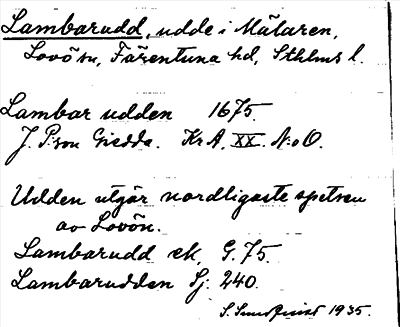 Lambarudd, udde i Mälaren,
Lovö sn, Färentuna hd, Sthlms l.
Lambar udden 1675.
J. P:son Giedda. KrA, XX. N:o O.
Udden utgör nordligaste spetsen
av Lovön.
Lambarudd ek, G. 75.
Lambarudden Sj. 240.
S. Sundquist 1935.